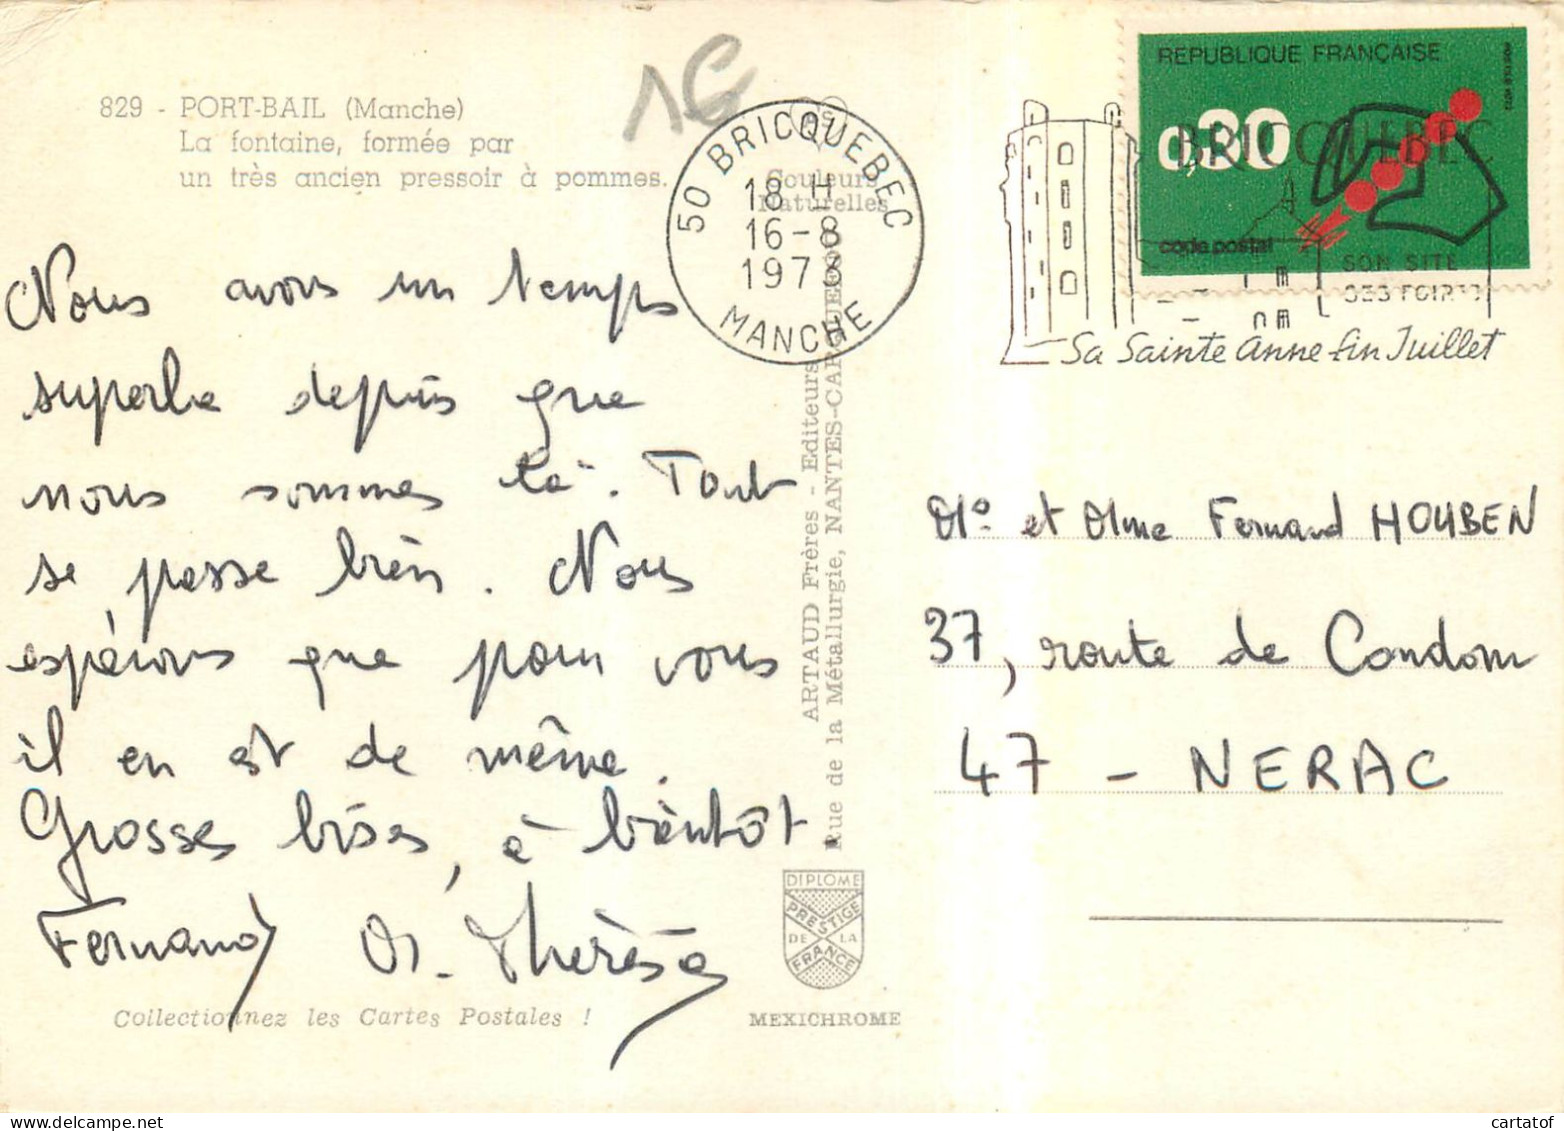 829 - PORT-BAIL (Manche)
La fontaine, formée par
un très ancien pressoir à pommes.
1€
Couleurs
Naturelles
50 BRICQUEBEC
18 H
16-8
1973
MANCHE
REPUBLIQUE FRANÇAISE
0,30
code postal
BRICQUEBEC
SON SITE
SES FOIRES
Sa Sainte Anne fin Juillet
Nous avons un temps
superbe depuis que
nous sommes là. Tout
se passe bien. Nous
espérons que pour vous
il en est de même.
Grosses bises, à bientôt.
Fernand M. Thérèse
ARTAUD Frères - Editeurs
Rue de la Métallurgie, NANTES-CARQUEFOU
Mr et Mme Fernand HOUBEN
37, route de Condom
47 - NERAC
DIPLOME
PRESTIGE
DE LA
FRANCE
Collectionnez les Cartes Postales !
MEXICHROME
cartatof